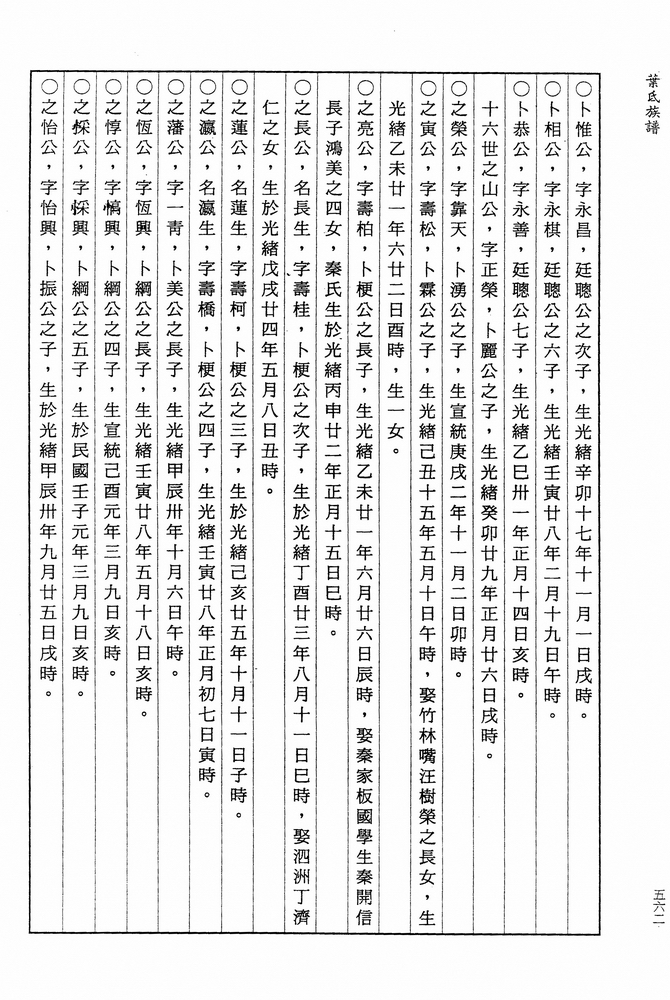 葉氏族譜
〇卜惟公，字永昌，廷聰公之次子，生光緒辛卯十七年十一月一日戌時。
〇卜相公，字永棋，廷聰公之六子，生光緒壬寅廿八年二月十九日午時。
〇卜恭公，字永善，廷聰公七子，生光緒乙巳卅一年正月十四日亥時。
十六世之山公，字正榮，卜麗公之子，生光緒癸卯廿九年正月廿六日戌時。
〇之榮公，字靠天，卜湧公之子，生宣統庚戌二年十一月二日卯時。
〇之寅公，字壽松，卜霖公之子，生光緒己丑十五年五月十日午時，娶竹林嘴汪樹榮之長女，生
光緒乙未廿一年六廿二日酉時，生一女。
〇之亮公，字壽柏，卜梗公之長子，生光緒乙未廿一年六月廿六日辰時，娶秦家板國學生秦開信
長子鴻美之四女，秦氏生於光緒丙申廿二年正月十五日巳時。
〇之長公，名長生，字壽桂，卜梗公之次子，生於光緒丁酉廿三年八月十一日巳時，娶泗洲丁濟
仁之女，生於光緒戊戌廿四年五月八日丑時。
〇之蓮公，名蓮生，字壽柯，卜梗公之三子，生於光緒己亥廿五年十月十一日子時。
〇之瀛公，名瀛生，字壽橋，卜梗公之四子，生光緒壬寅廿八年正月初七日寅時。
〇之藩公，字一青，卜美公之長子，生光緒甲辰卅年十月六日午時。
〇之恆公，字恆興，卜綱公之長子，生光緒壬寅廿八年五月十八日亥時。
〇之惇公，字慎興，卜綱公之四子，生宣統己酉元年三月九日亥時。
〇之悰公，字悰興，卜綱公之五子，生於民國壬子元年三月九日亥時。
〇之怡公，字怡興，卜振公之子，生於光緒甲辰卅年九月廿五日戌時。
五六二